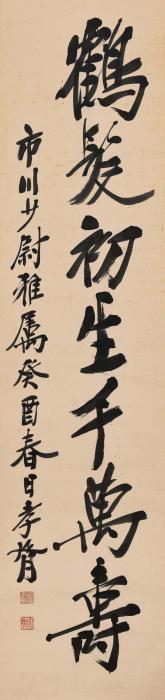 鶴髮初生千萬壽
市川少尉雅屬癸酉春日孝胥